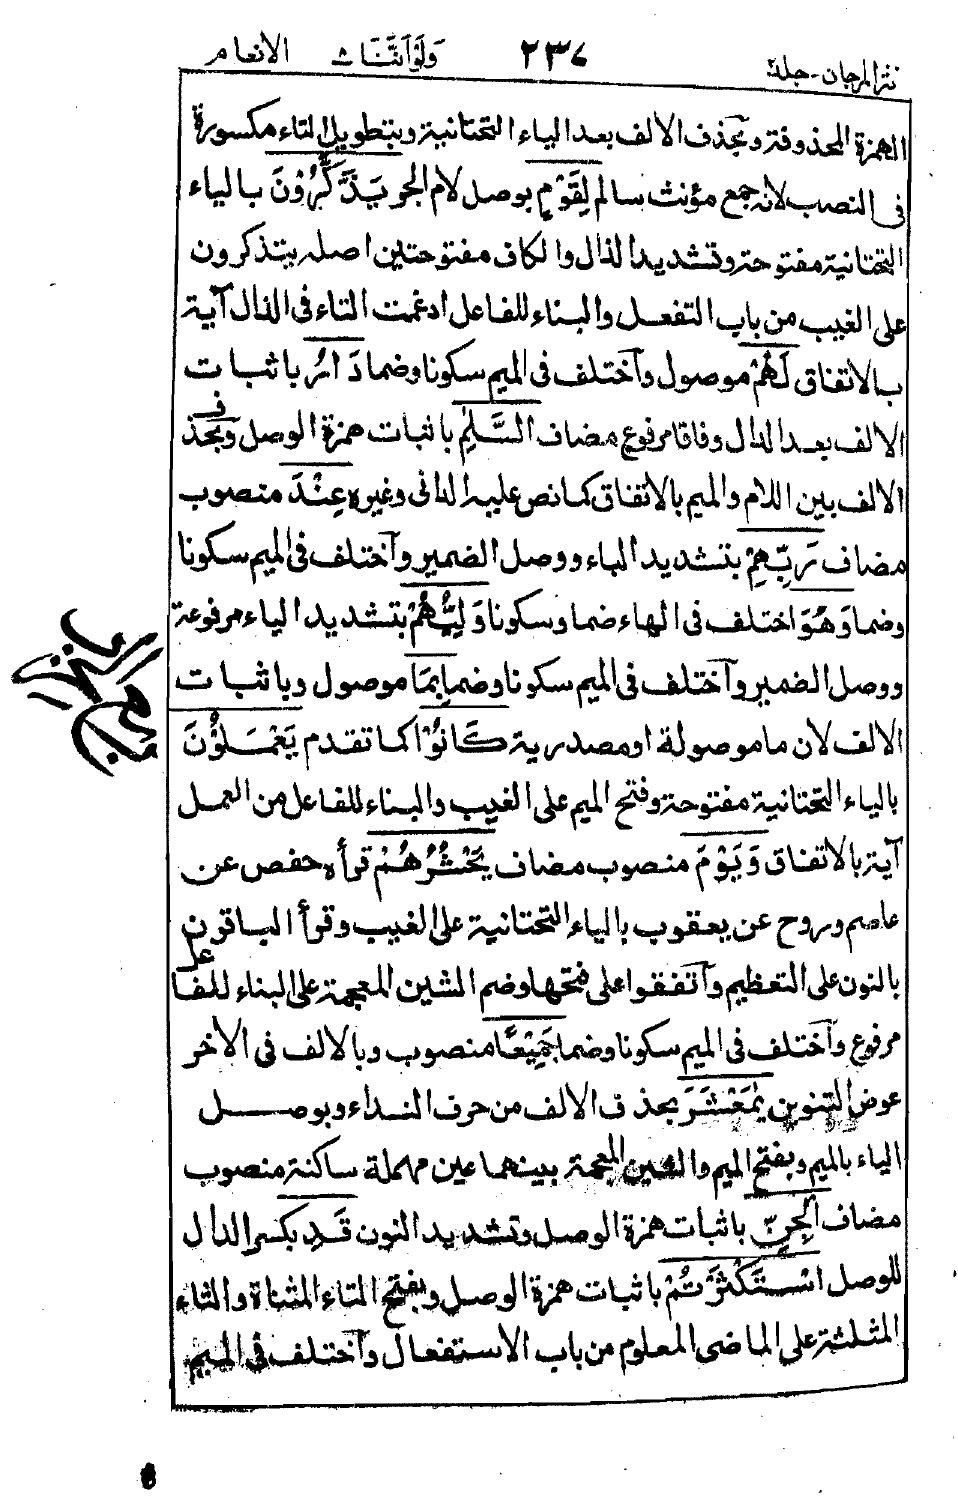 نثر المرجان - جلد٢ ٢٣٧ ولو اننا ٨ الانعام
الهمزة المحذوفة وبحذف الالف بعد الياء التحتانية وبتطويل التاء مكسورة
فى النصب لانه جمع مؤنث سالم لِقَوْمٍ بوصل لام الجر يَذَّكَّرُوْنَ بالياء
التحتانية مفتوحة وتشديد الذال والكاف مفتوحتين اصله يتذكرون
على الغيب من باب التفعل والبناء للفاعل ادغمت التاء فى الذال آية
بالاتفاق لَهُمْ موصول وآختلف فى الميم سكونا وضما دَارُ باثبات
الالف بعد الدال وفاقا مرفوع مضاف السَّلٰمِ باثبات همزة الوصل وبحذف
الالف بين اللام والميم بالاتفاق كما نص عليه الدانى وغيره عِنْدَ منصوب
مضاف رَبِّهِمْ بتشديد الباء ووصل الضمير وآختلف فى الميم سكونا
وضما وَهُوَ اختلف فى الهاء ضما وسكونا وَلِيُّهُمْ بتشديد الياء مرفوعة
ووصل الضمير وآختلف فى الميم سكونا وضما بِمَا موصول وباثبات
الالف لان ما موصولة او مصدرية كَانُوْا كما تقدم يَعْمَلُوْنَ
بالياء التحتانية مفتوحة وفتح الميم على الغيب والبناء للفاعل من العمل
آية بالاتفاق وَيَوْمَ منصوب مضاف يَحْشُرُهُمْ قرأه حفص عن
عاصم وروح عن يعقوب بالياء التحتانية على الغيب وقرأ الباقون
بالنون على التعظيم وآتفقوا على فتحها وضم الشين المعجمة على البناء للفاعل
مرفوع وآختلف فى الميم سكونا وضما جَمِيْعًا منصوب وبالالف فى الآخر
عوض التنوين يٰمَعْشَرَ بحذف الالف من حرف النداء وبوصل
الياء بالميم وبفتح الميم والشين المعجمة بينهما عين مهملة ساكنة منصوب
مضاف الْجِنِّ باثبات همزة الوصل وتشديد النون قَدِ بكسر الدال
للوصل اسْتَكْثَرْتُمْ باثبات همزة الوصل وبفتح التاء المثناة والثاء
المثلثة على الماضى المعلوم من باب الاستفعال وآختلف فى الميم